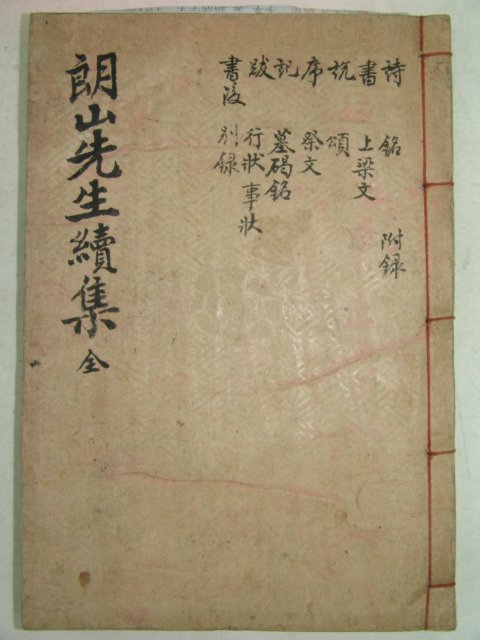 詩 銘 附録
書 上梁文
說 頌
序 祭文
記 墓碣銘
跋 行狀 事狀
書後 別録
朗山先生續集 全